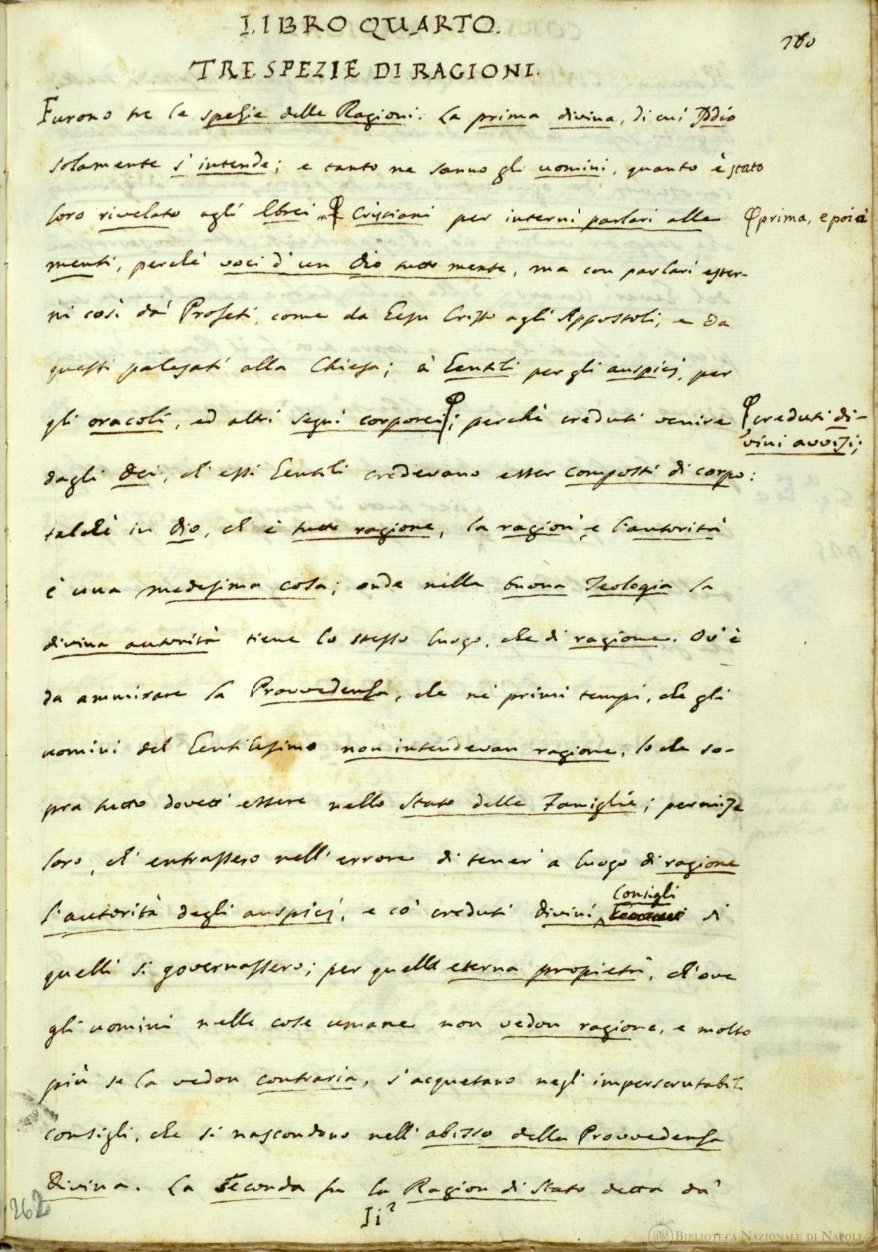 LIBRO QUARTO.
760
TRE SPEZIE DI RAGIONI.
Furono tre le spezie delle Ragioni. La prima divina, di cui Iddio
solamente s'intende; e tanto ne sanno gli uomini, quanto è stato
loro rivelato agli Ebrei e Cristiani per interni parlari alle
prima, e poi à
menti, perchè voci d'un Dio tutto mente, ma con parlari ester-
ni così da' Profeti, come da Gesu Cristo agli Appostoli, e da
questi palesati alla Chiesa; à Gentili per gli auspicj, per
gli oracoli, ed altri segni corporei; perchè creduti venire
creduti di-
vini avvisi;
dagli Dei, ch'essi Gentili credevano esser composti di corpo:
talchè in Dio, ch'è tutto ragione, la ragion' e l'autorità
è una medesima cosa; onde nella buona Teologia la
divina autorità tiene lo stesso luogo, che di ragione. Ov'è
da ammirare la Provvedenza, che ne' primi tempi, che gli
uomini del Gentilesimo non intendevan ragione, lo che so-
pra tutto dovett' essere nello Stato delle Famiglie; permise
loro, ch'entrassero nell'errore di tener' a luogo di ragione
l'autorità degli auspicj, e co' creduti divini Consigli di
quelli si governassero; per quella eterna propietà, ch'ove
gli uomini nelle cose umane non vedon ragione, e molto
più se la vedon contraria, s'acquetano negl' imperscrutabili
consigli, che si nascondono nell'abisso della Provvedenza
Divina. La seconda fu la Ragion di Stato detta da'
262
Ii²
BIBLIOTECA NAZIONALE DI NAPOLI